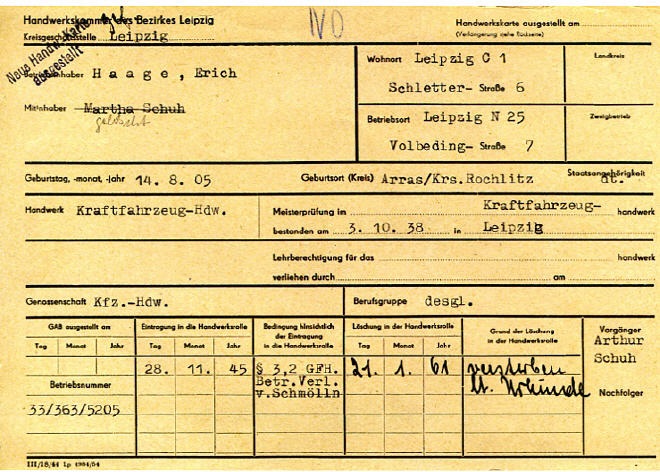 Handwerkskammer des Bezirkes Leipzig
Kreisgeschäftsstelle Leipzig
Neue Handw.-Karte
ausgestellt
IVO
Handwerkskarte ausgestellt am
(Verlängerung siehe Rückseite)
Betriebsinhaber Haage, Erich
Mitinhaber Martha Schuh
gelöscht
Wohnort Leipzig C 1
Schletter- Straße 6
Landkreis
Betriebsort Leipzig N 25
Volbeding- Straße 7
Zweigbetrieb
Geburtstag, -monat, -jahr 14. 8. 05
Geburtsort (Kreis) Arras/Krs.Rochlitz
Staatsangehörigkeit dt.
Handwerk Kraftfahrzeug-Hdw.
Meisterprüfung im Kraftfahrzeug- handwerk
bestanden am 3. 10. 38 in Leipzig
Lehrberechtigung für das handwerk
verliehen durch am
Genossenschaft Kfz.-Hdw.
Berufsgruppe desgl.
GAB ausgestellt am
Tag Monat Jahr
Betriebsnummer
33/363/5205
Eintragung in die Handwerksrolle
Tag Monat Jahr
28. 11. 45
Bedingung hinsichtlich
der Eintragung
in die Handwerksrolle
§ 3,2 GFH.
Betr.Verl.
v.Schmölln
Löschung in der Handwerksrolle
Tag Monat Jahr
21. 1. 61
Grund der Löschung
in der Handwerksrolle
verstorben
lt. Urkunde
Vorgänger
Arthur
Schuh
Nachfolger
III/18/44 Lp 4984/54